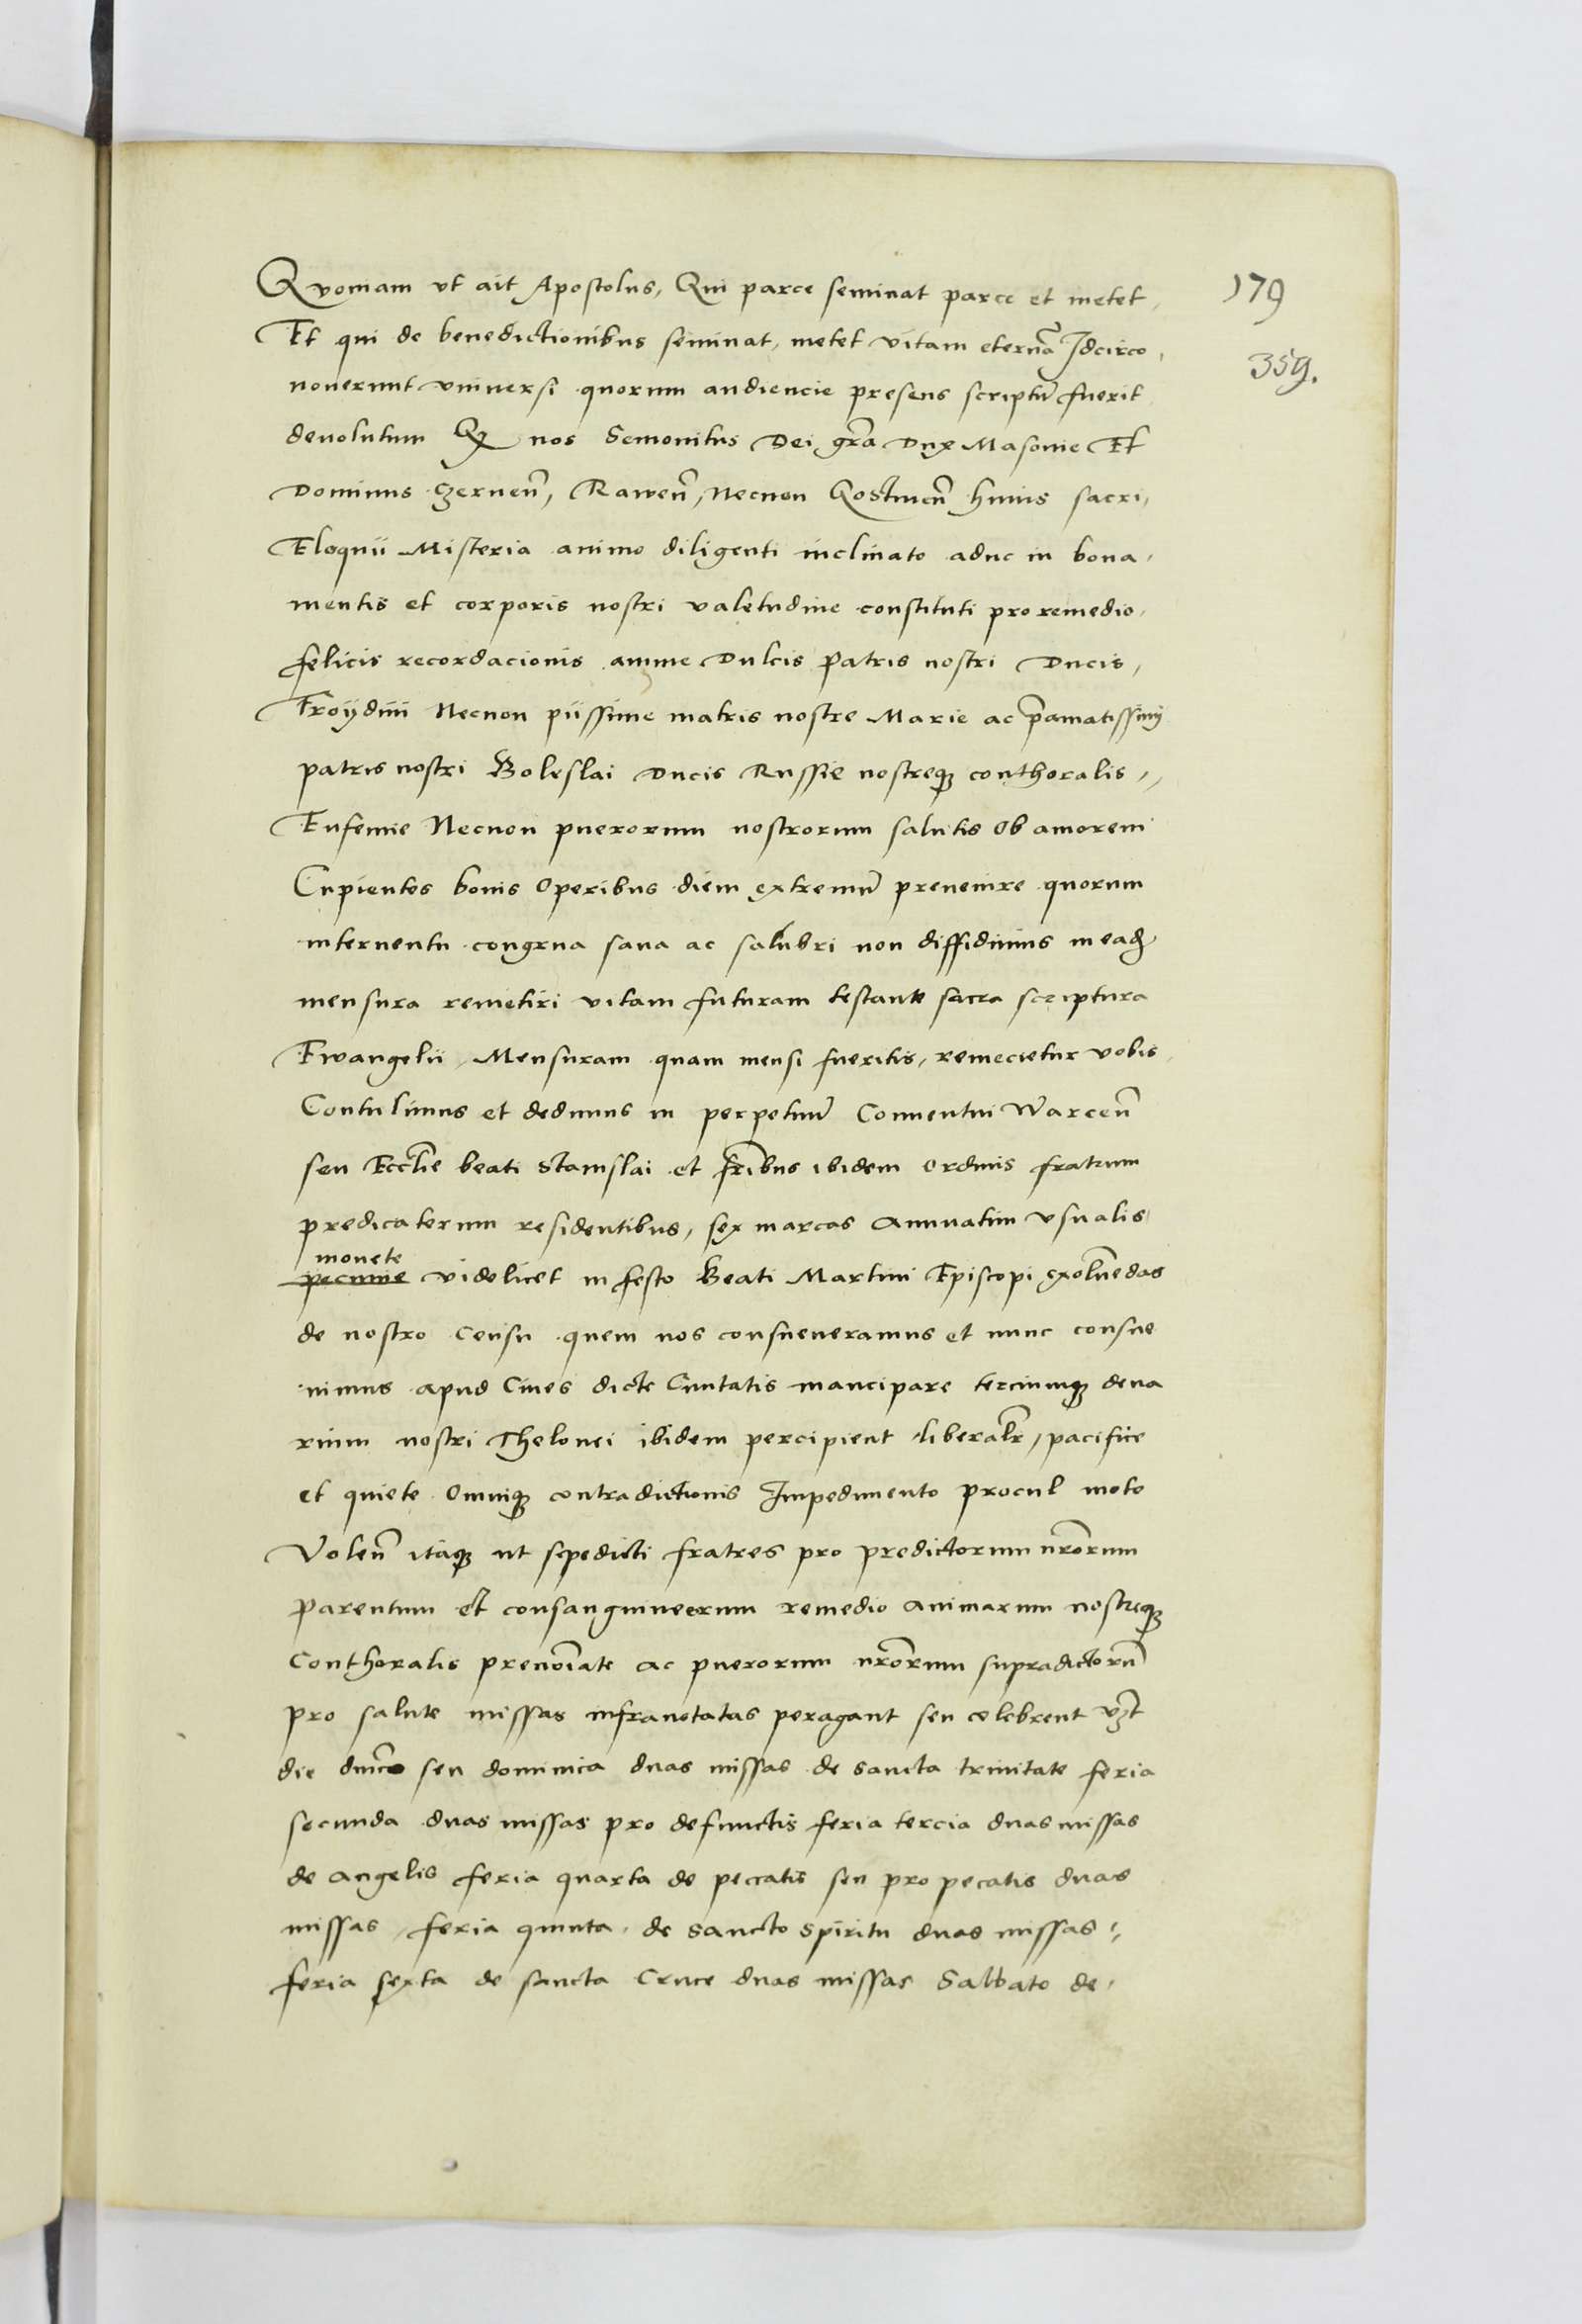 Quoniam ut ait Apostolus, Qui parce seminat parce et metet,
179
Et qui de benedictionibus seminat, metet vitam eternã Idcirco,
359.
nouerunt vniuersi quorum audiencie presens scriptũ fuerit
deuolutum Qz nos Semouitus Dei gr̃a Dux Masouie Et
Dominus Czernen̄, Rawen̄, Necnon Gostinen̄ huius sacri,
Eloquii Misteria animo diligenti inclinato aduc in bona,
mentis et corporis nostri valetudine constituti pro remedio,
felicis recordacionis anime Dulcis patris nostri Ducis,
Troÿdini Necnon piissime matris nostre Marie ac p̃amatissimj
patris nostri Boleslai Ducis Russie nostreq3 conthoralis,,
Eufemie Necnon puerorum nostrorum salutis Ob amorem
Cupientes bonis Operibus diem extremũ preuenire quorum
interuentu congrua sana ac salubri non diffidimus in eadẽ
mensura remetiri vitam futuram testante sacra scriptura
Ewangelii, Mensuram quam mensi fueritis, remecietur vobis,
Contulimus et dedimus in perpetuũ Conuentui Warcen̄
seu Eccl̃ie beati Stanislai et fr̃ibus ibidem Ordinis fratrum
predicatorum residentibus, sex marcas Annuatim vsualis
monete
pecunie videlicet in festo Beati Martini Episcopi exoluẽdas
de nostro Censu quem nos consueueramus et nunc consue
uimus apud Ciues dicte Ciuitatis mancipare terciumq3 dena
rium nostri Thelonei ibidem percipient liberalr̃, pacifice
et quiete Omniq3 contradictionis Impedimento procul moto
Volen̄ itaq3 ut sepedicti fratres pro predictorum nr̃orum
parentum et consanguineorum remedio animarum nostreq3
Conthoralis prenoĩate ac puerorum nr̃orum supradictorũ
pro salute missas infranotatas peragant seu celebrent vz̃t
die dnĩco seu dominica duas missas de Sancta trinitate feria
secunda duas missas pro defunctis feria tercia duas missas
de Angelis feria quarta de peccatis seu pro pecatis duas
missas, feria quinta de Sancto Spiritu duas missas,
feria sexta de sancta Cruce duas missas Sabbato de,